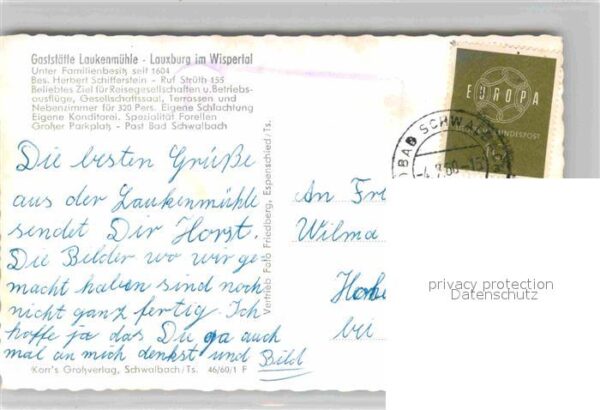 Gaststätte Laukenmühle - Lauxburg im Wispertal
Unter Familienbesitz seit 1604
Bes. Herbert Schifferstein - Ruf Strüth 155
Beliebtes Ziel für Reisegesellschaften u. Betriebs-
ausflüge, Gesellschaftssaal, Terrassen und
Nebenzimmer für 320 Pers. Eigene Schlachtung
Eigene Konditorei. Spezialität Forellen
Großer Parkplatz - Post Bad Schwalbach
Die besten Grüße
aus der Laukenmühle
sendet Dir Horst.
Die Bilder wo wir ge-
macht haben sind noch
nicht ganz fertig. Ich
hoffe ja das Du ga auch
mal an mich denkst und Bild
Korr's Großverlag, Schwalbach/Ts. 46/60/1 F
Vertrieb Foto Friedberg, Espenschied/Ts.
EUROPA
BUNDESPOST
BAD SCHWAL
-4.7.60-15
An Fr
Wilma
bu
privacy protection
Datenschutz